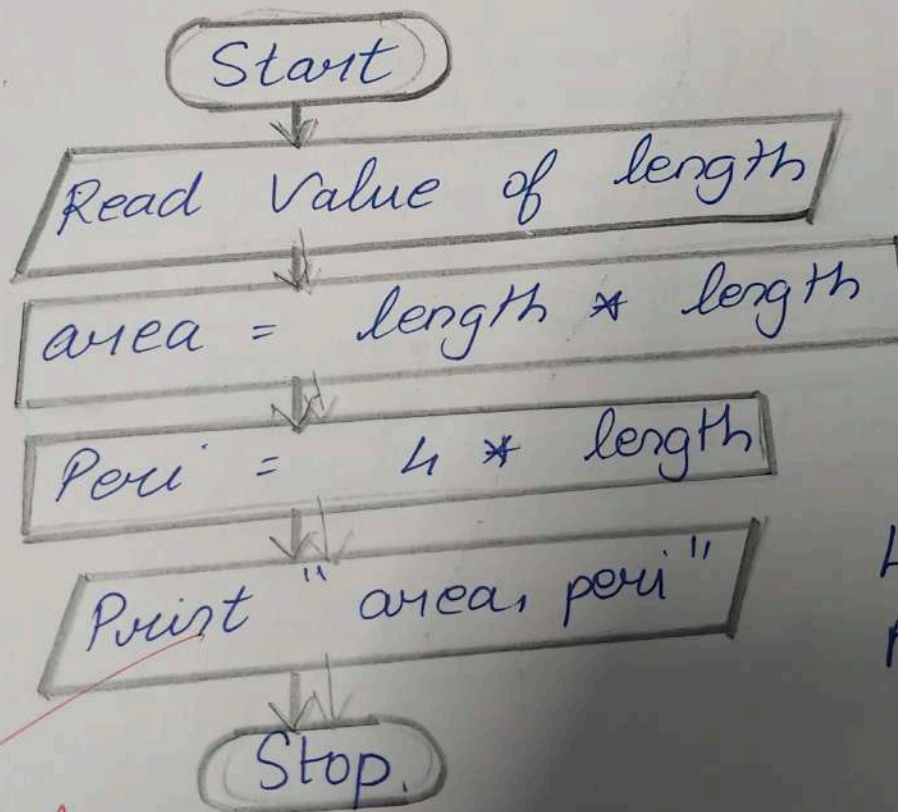 Start
Read Value of length
area = length * length
Peri = 4 * length
Print "area, peri"
Stop.